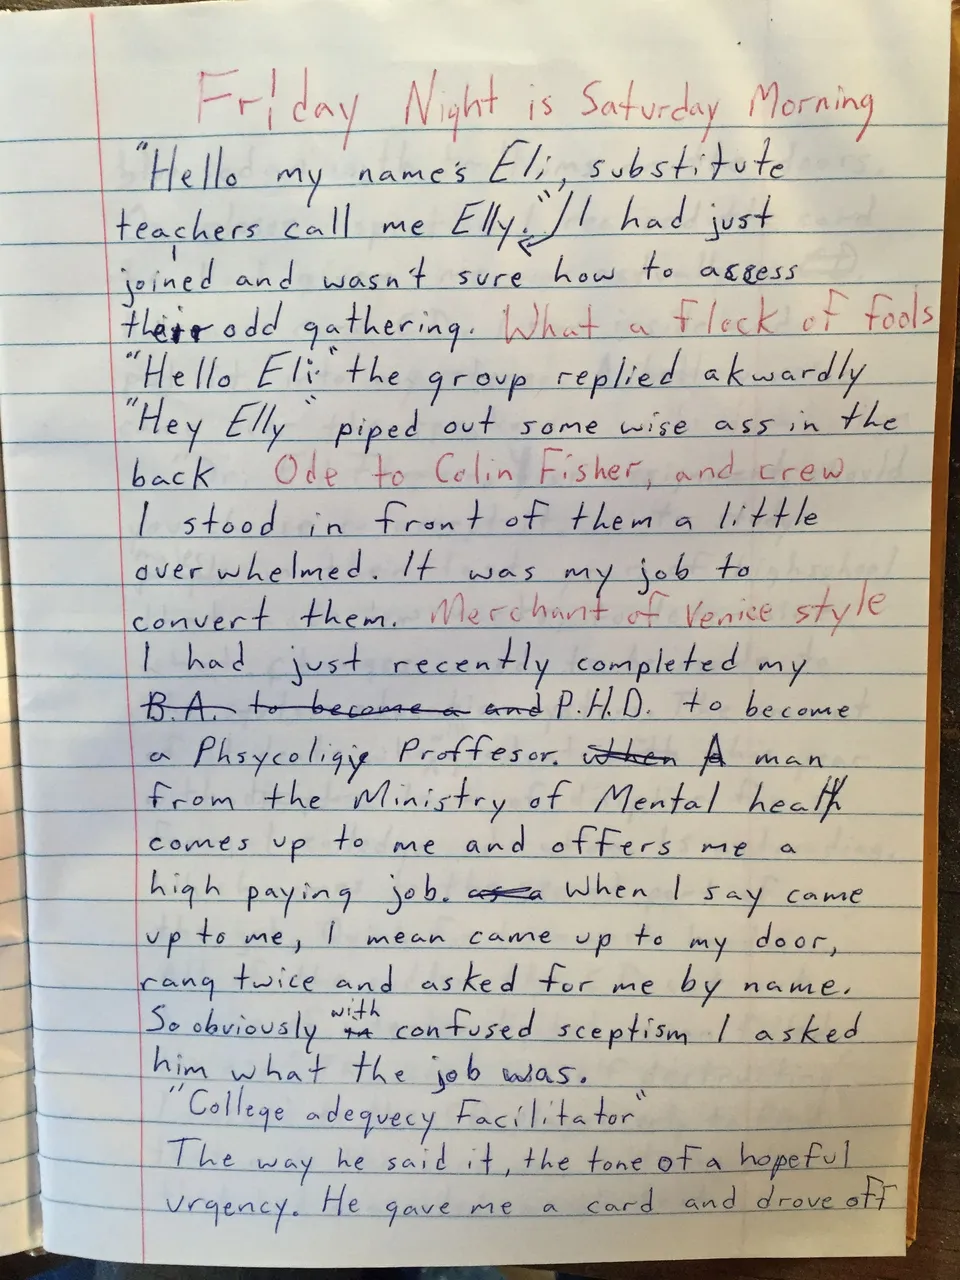 Friday Night is Saturday Morning
"Hello my name's Eli, substitute
teachers call me Elly." I had just
joined and wasn't sure how to assess
their odd gathering. What a flock of fools
"Hello Eli" the group replied akwardly
"Hey Elly" piped out some wise ass in the
back Ode to Colin Fisher, and crew
I stood in front of them a little
overwhelmed. It was my job to
convert them. Merchant of Venice style
I had just recently completed my
B.A. to become a and P.H.D. to become
a Phsycoligiy Proffesor. when A man
from the Ministry of Mental health
comes up to me and offers me a
high paying job. as a When I say came
up to me, I mean came up to my door,
rang twice and asked for me by name.
So obviously with confused sceptism I asked
him what the job was.
"College adequecy Facilitator"
The way he said it, the tone of a hopeful
urgency. He gave me a card and drove off